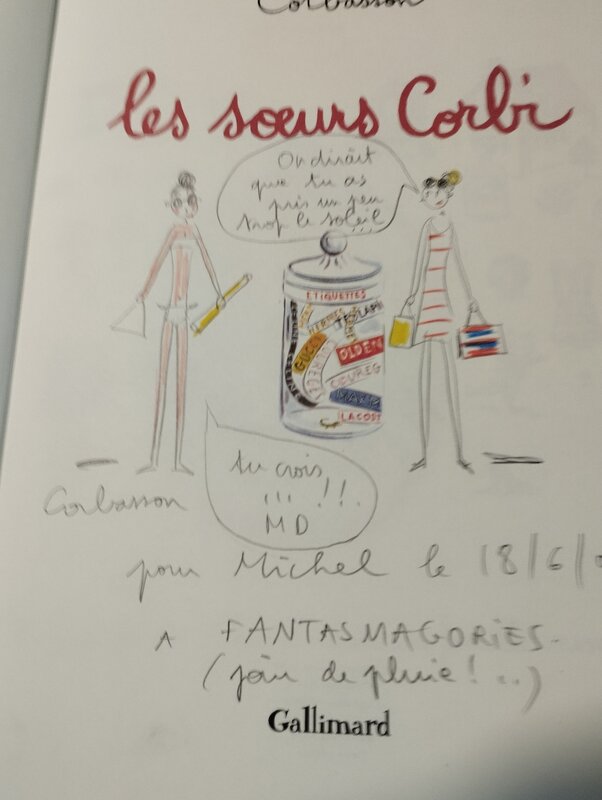 Corbasson
les sœurs Corbi
On dirait
que tu as
pris un peu
trop le soleil...
ETIQUETTES
HERMES
GUCCI
OLDEN
LACOST
tu crois
... !!.
MD
Corbasson
pour Michel le 18/6/
A FANTASMAGORIES.
(jour de pluie!...)
Gallimard